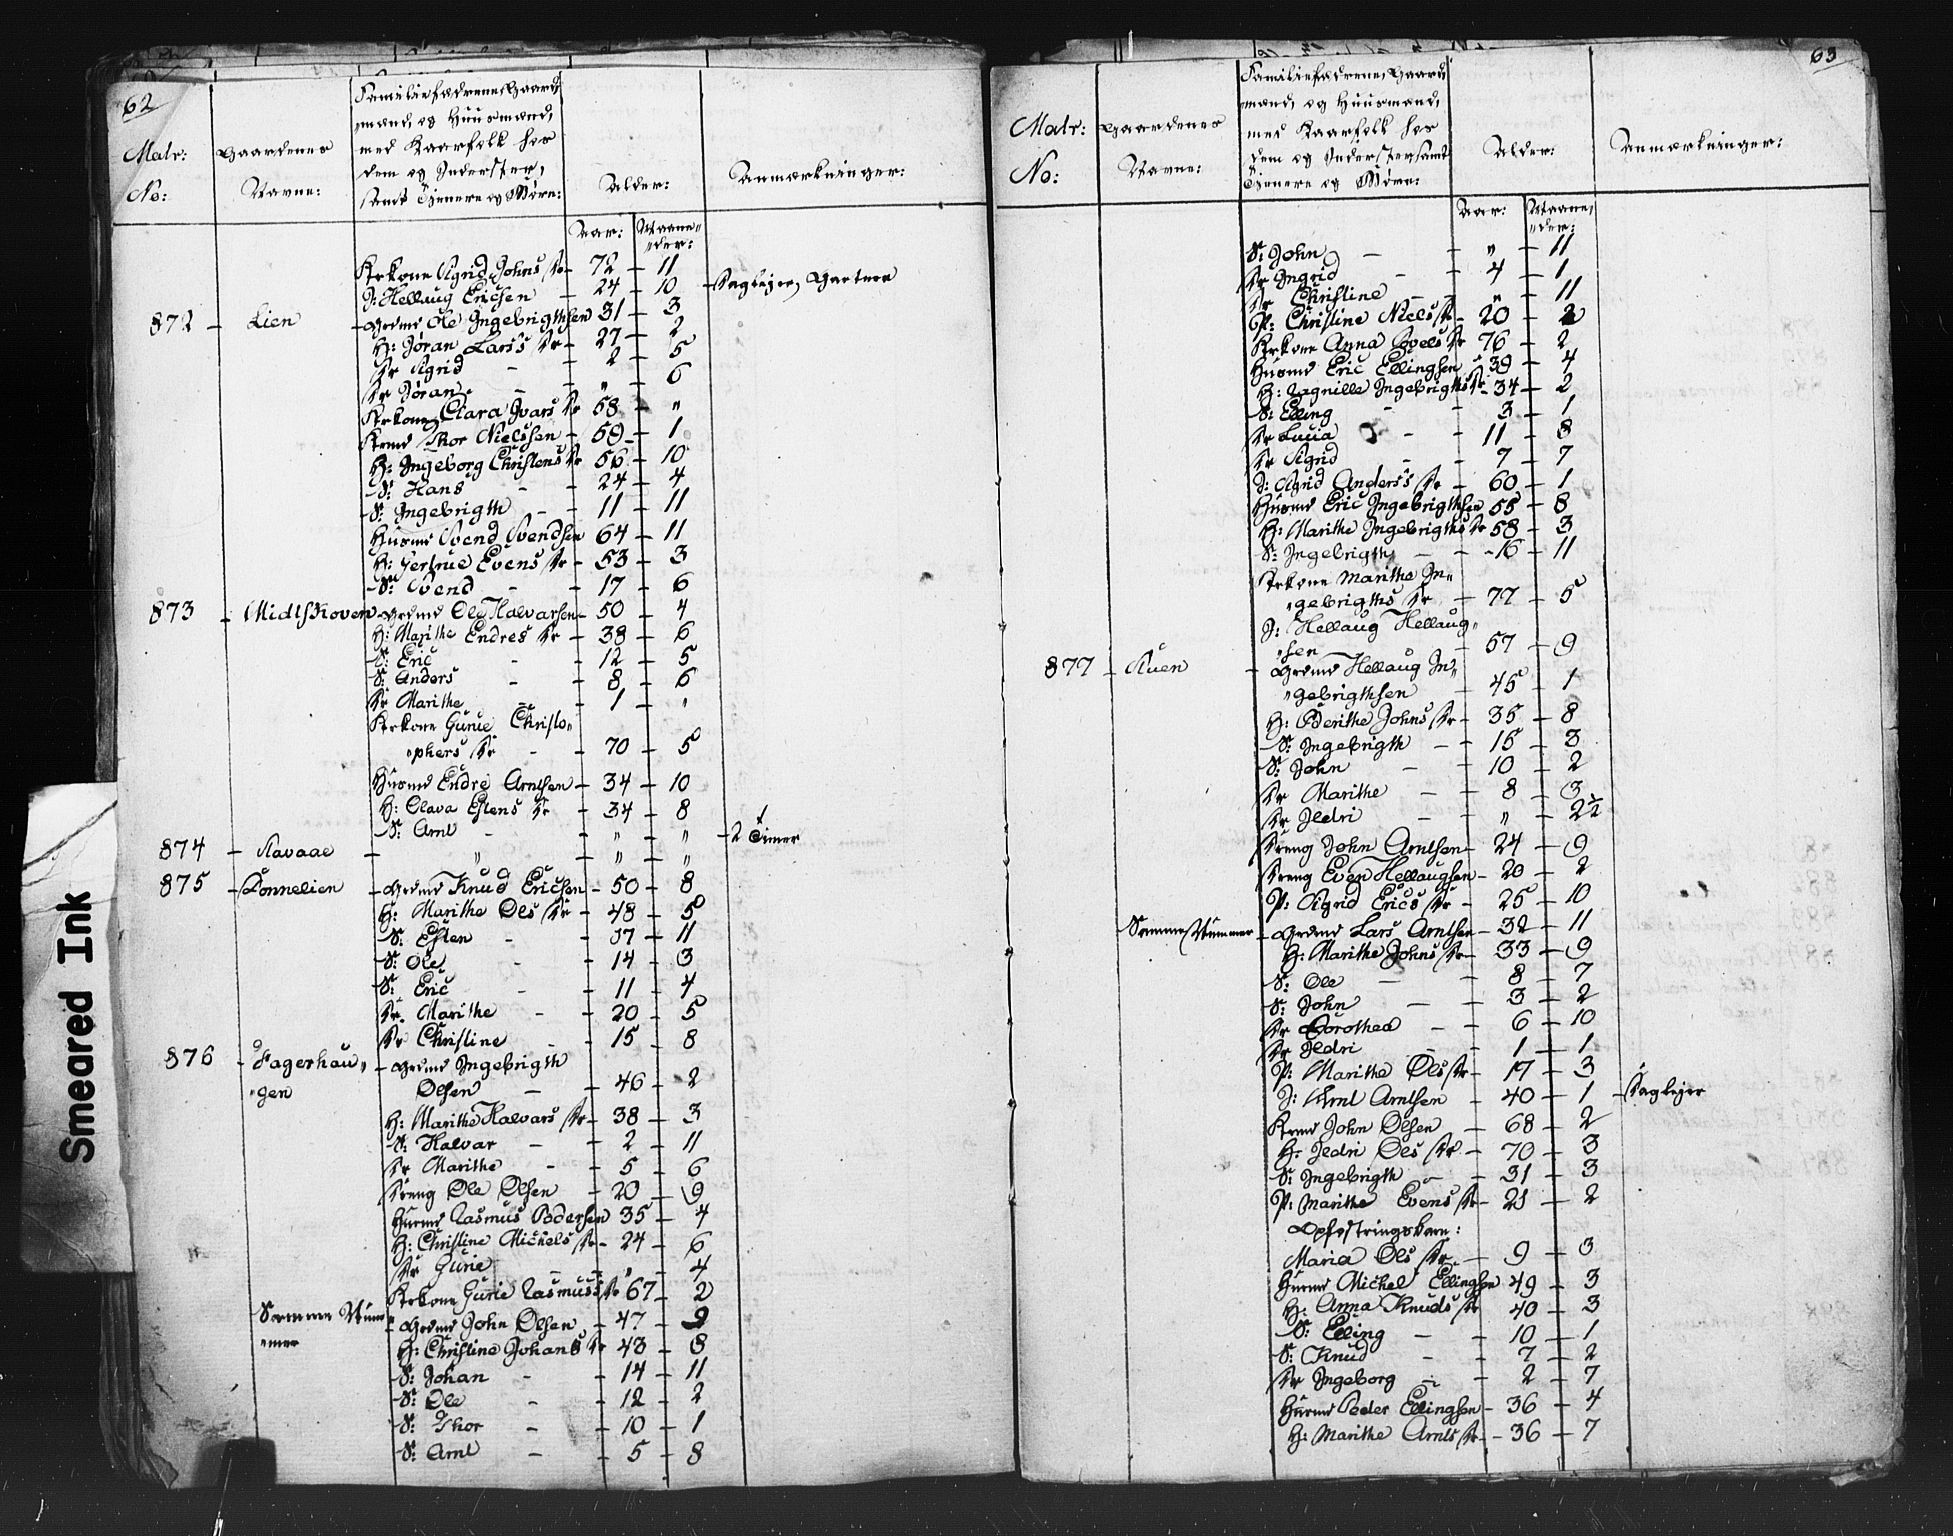 62
Matr:
No:
Gaardenes
Navne:
Familiefædrene, Gaard,
mænd, og Huusmænd,
med Kaarfolk hos
dem og Inderster,
samt Tjenere og Børn:
Alder:
Anmærkninger:
Aar: Maane,,
,,der:
Krkone Sigrid Johns Dr – 72 – 11
I: Hellaug Ericsen – 24 – 10
872 – Lien – Grdmd Ole Ingebrigthsen 31 – 3
H: Jøran Lars's Dr – 27 – 2
Dr Sigrid – 2 – 5
Dr Jøran – " – 6
Krkone Clara Ivars Dr 58 – "
Krmd Thor Nielssen – 59 – 1
H: Ingeborg Christens Dr 56 – 10
S: Hans – 24 – 4
S: Ingebrigth – 11 – 11
Husmd Svend Svendsen 64 – 11
H: Gertrue Evens Dr – 53 – 3
S: Svend – 17 – 6
873 – Midtskoven Grdmd Ole Halvarsen – 50 – 4
H: Marithe Endres Dr – 38 – 6
S: Eric – 12 – 5
S: Anders – 8 – 6
Dr Marithe – 1 – "
Krkone Gurie Christo,,
,,phers Dr – 70 – 5
Husmd Endre Arntsen – 34 – 10
H: Olava Estens Dr – 34 – 8
S: Arnt – " – " – 2 Timer
874 – Aavaae – " – " – "
875 – Tonnelien – Grdmd Knud Ericsen – 50 – 8
H: Marithe Ols Dr – 48 – 5
S: Esten – 17 – 11
S: Ole – 14 – 3
S: Eric – 11 – 4
Dr. Marithe – 20 – 5
Dr Christine – 15 – 8
876 – Fagerhau,, – Grdmd Ingebrigth
,,gen Olsen – 46 – 2
H: Marithe Halvars Dr – 38 – 3
S: Halvar – 2 – 11
Dr Marithe – 5 – 6
Dreng Ole Olsen – 20 – 9
Husmd Rasmus Pedersen 35 – 4
H: Christine Michels Dr – 24 – 6
Dr Gurie – " – 4
Krkone Gurie Rasmus's Dr 67 – 2
Samme Num,,
,,mer
– Grdmd John Olsen – 47 – 9
H: Christine Johans Dr – 43 – 8
S: Johan – 14 – 11
S: Ole – 12 – 2
S: Thor – 10 – 1
S: Arnt – 5 – 8
63
Matr:
No:
Gaardenes
Navne:
Familiefædrene, Gaard,
mænd, og Huusmænd,
med Kaarfolk hos
dem og Inderster, samt
Tjenere og Børn:
Alder:
Anmærkninger:
Aar: Maane,,
,,der:
S: John – " – 11
Dr Ingrid – 4 – 1
Dr Christine – " – 11
P: Christine Niels Dr – 20 – 2
Krkone Anna Povels Dr 76 – 2
Husmd Eric Ellingsen 39 – 4
H: Ragnille Ingebrigths Dr – 34 – 2
S: Elling – 3 – 1
Dr Lucia – 11 – 8
Dr Sigrid – 7 – 7
I: Sigrid Anders's Dr – 60 – 1
Husmd Eric Ingebrigthsen 55 – 8
H: Marithe Ingebrigths Dr 58 – 3
S: Ingebrigth – 16 – 11
Krkone Marithe In,,
,,gebrigths Dr – 77 – 5
I: Hellaug Hellaug,,
,,sen 57 – 9
877 – Auen – Grdmd Hellaug In,,
,,gebrigthsen 45 – 1
H: Berithe Johns Dr – 35 – 8
S: Ingebrigth – 15 – 3
S: John – 10 – 2
Dr Marithe – 8 – 3
Dr Jedri – " – 2½
Dreng John Arntsen – 24 – 9
Dreng Even Hellaugsen – 20 – 2
P: Sigrid Erics Dr – 25 – 10
Samme Nummer – Grdmd Lars Arntsen – 32 – 11
H: Marithe Johns Dr – 33 – 9
S: Ole – 8 – 7
S: John – 3 – 2
Dr Dorothea – 6 – 10
Dr Jedri – 1 – 1
P: Marithe Ols Dr – 17 – 3
I: Arnt Arntsen – 40 – 1
Krmd John Olsen – 68 – 2
H: Jedri Ols Dr – 70 – 3
S: Ingebrigth – 31 – 3
P: Marithe Evens Dr – 21 – 2
Opfostringsbarn:
Maria Ols Dr – 9 – 3
Husmd Michel Ellingsen 49 – 3
H: Anna Knuds Dr 40 – 3
S: Elling – 10 – 1
S: Knud – 7 – 2
Dr Ingeborg – 2 – 7
Husmd Peder Ellingsen – 36 – 4
H: Marithe Arnts Dr – 36 – 7
Smeared Ink